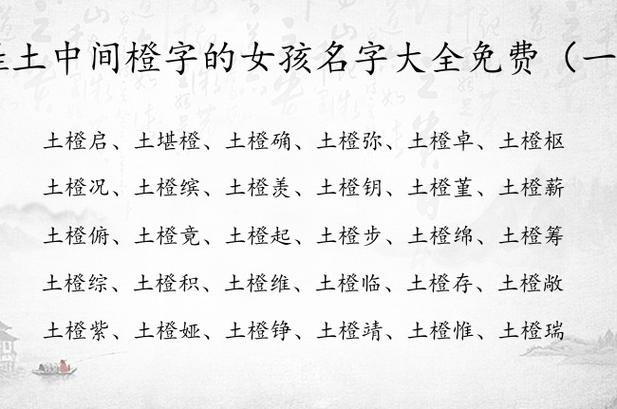 姓土中间橙字的女孩名字大全免费（一
土橙启、土堪橙、土橙确、土橙弥、土橙卓、土橙枢
土橙况、土橙缤、土橙羡、土橙钥、土橙堇、土橙薪
土橙俯、土橙竞、土橙起、土橙步、土橙绵、土橙筹
土橙综、土橙积、土橙维、土橙临、土橙存、土橙敞
土橙紫、土橙娅、土橙铮、土橙靖、土橙惟、土橙瑞